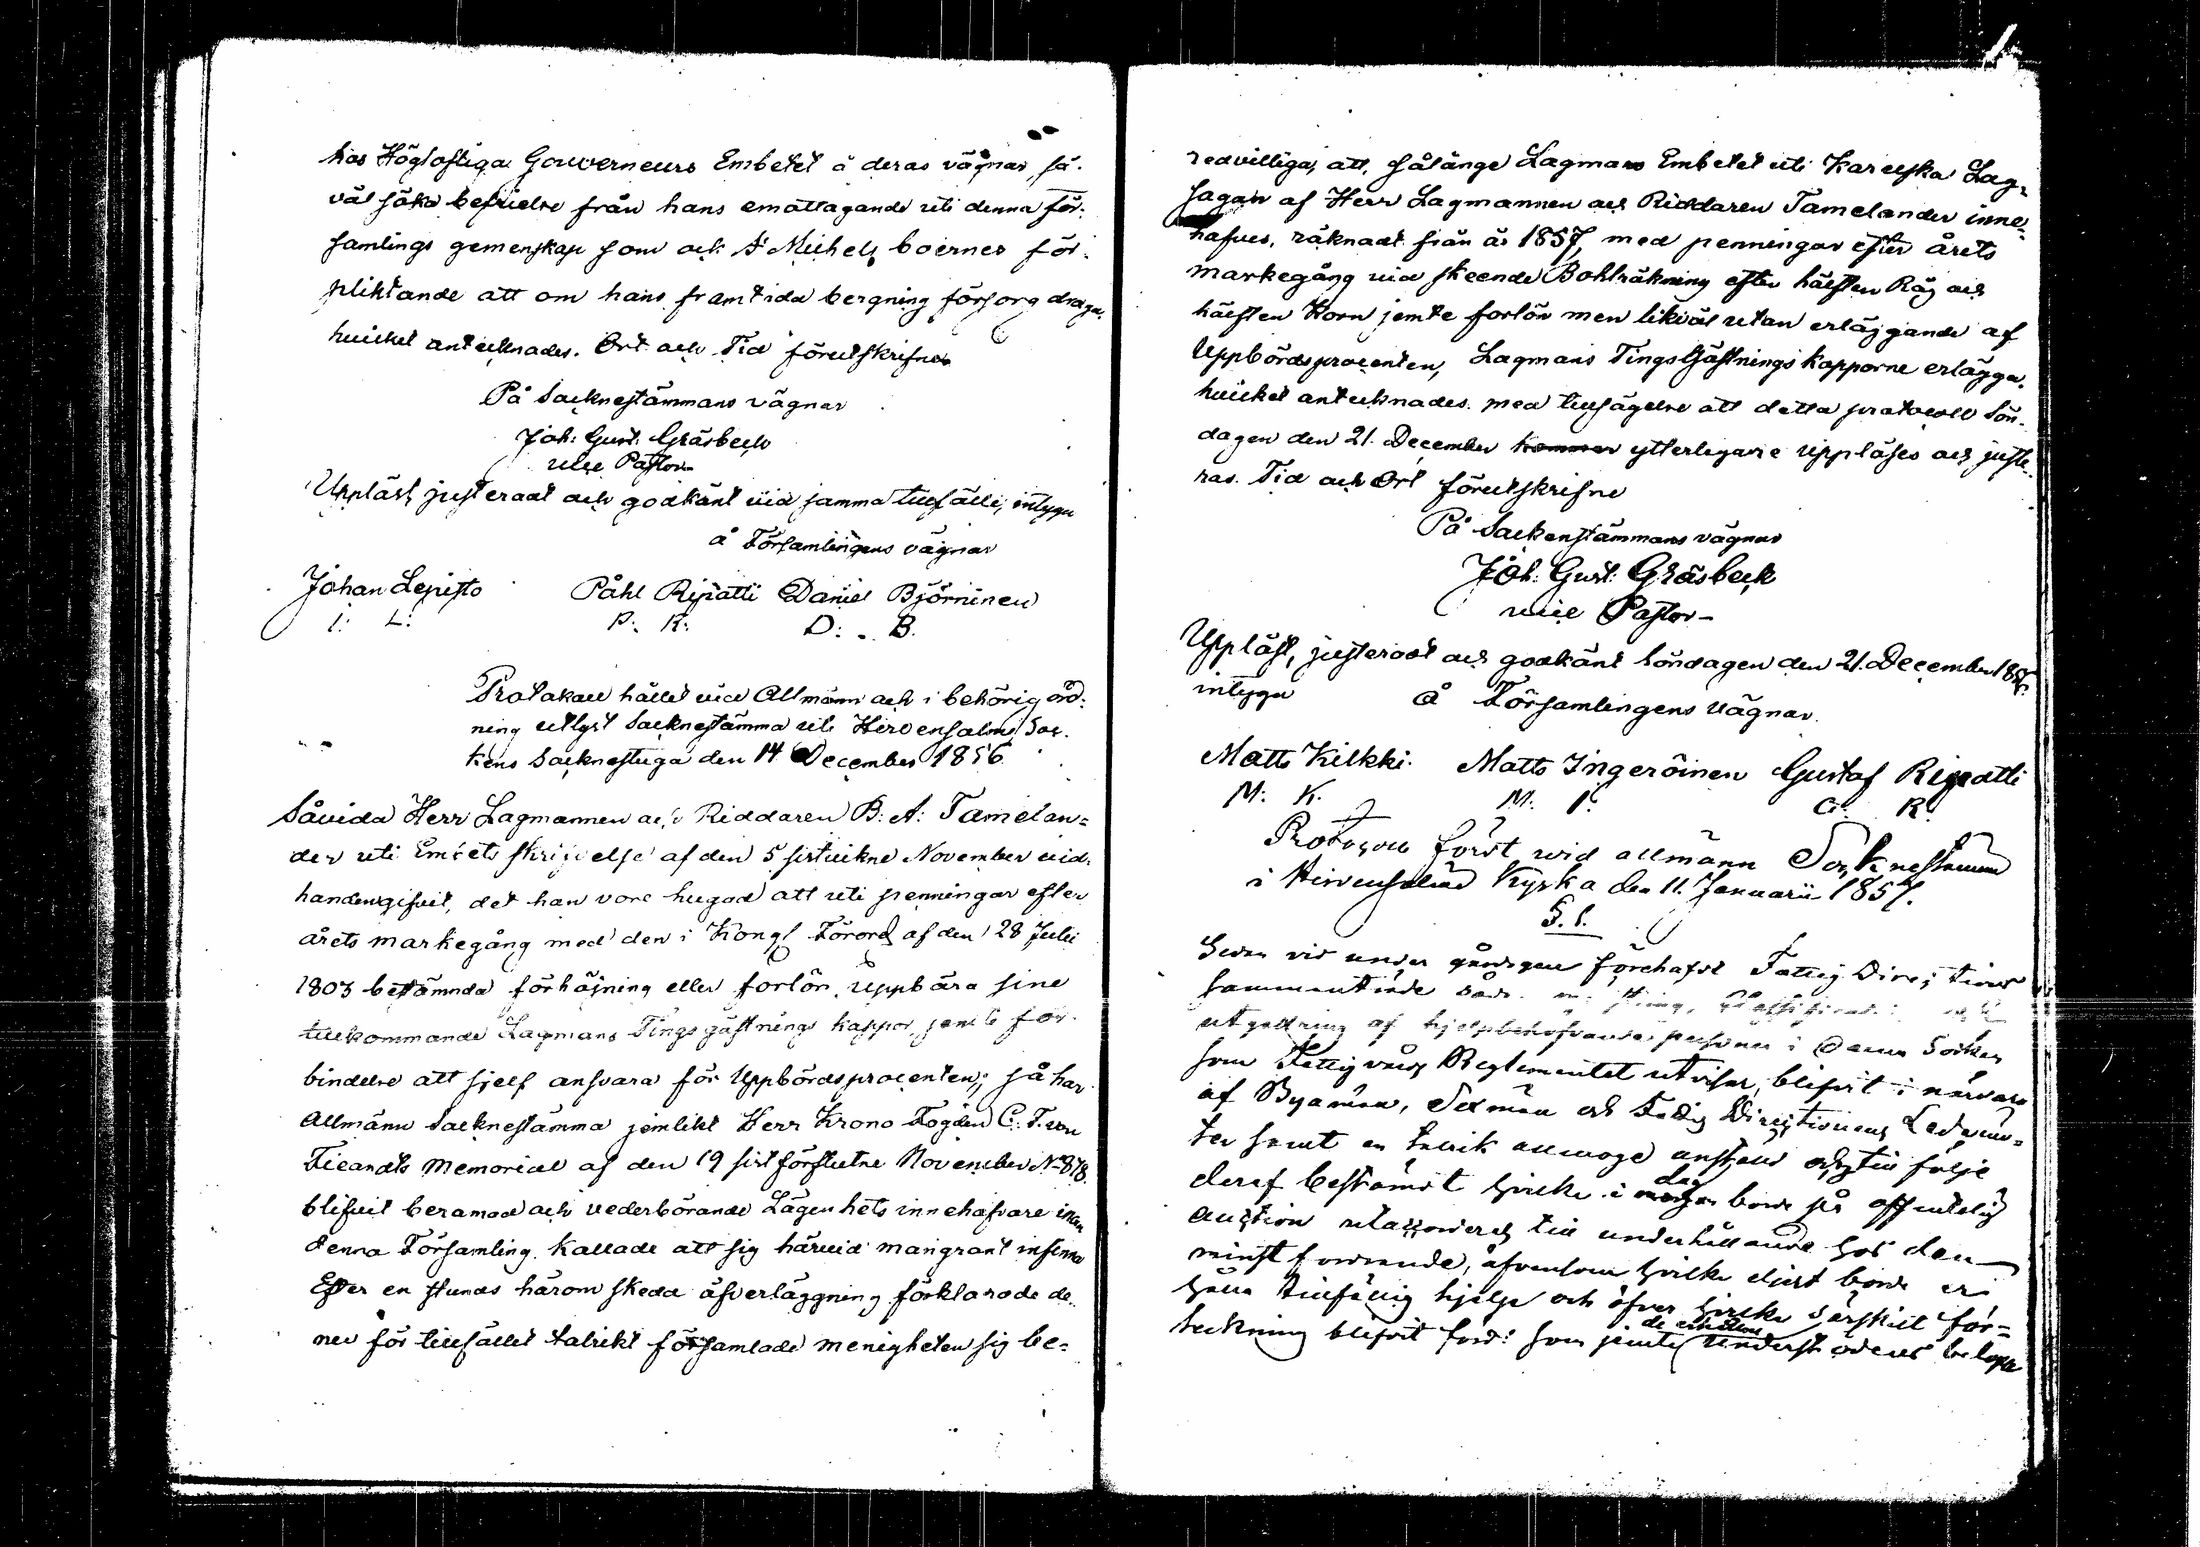 hos Höglofliga Gouverneurs Embetet å deras vägnar så-
väl söka befrielse från hans emottagande uti denna för-
samlings gemenskap som ock St Michels boernes för-
pliktande att om hans framtida bergning försorg draga,
hvilket antecknades. Ort och Tid förutskrifne
På Socknestämmans vägnar
Joh: Gust: Gräsbeck
vice Pastor
Uppläst, justeradt och godkänt vid samma tillfälle, intyga
å Församlingens vägnar
Johan Lepisto Påhl Ripatti Daniel Björninen
I: L: P: R: D: B.
Protokoll hållet vid Allmänn och i behörig ord-
ning utlyst Socknestämma uti Hirvensalmi Soc-
kens Socknestuga den 14 December 1856
Såvida Herr Lagmannen och Riddaren B: A: Tamelan=
der uti Embets skrifvelse af den 5 sistvikne November vid-
handengifvit, det han vore hugad att uti penningar efter
årets markegång med den i Kongl Förord af den 28 Julii
1803 bestämnda förhöjning eller forlön uppbära sine
tillkommande Lagmans Tings gästnings kappor, jemte för-
bindelse att sjelf ansvara för Uppbördsprocenten; så har
Allmänn Socknestämma jemlikt Herr Krono Fogden C: F. von
Fieandts Memorial af den 19 sist förflutne November No 878.
blifvit beramad och vederbörande Lägenhets innehafvare inan
denna Församling kallade att sig härvid mangrant infinna
Efter en stunds härom skedd öfverläggning förklarade de-
ne för tillfället talrikt församlade menigheten sig be=
redvilliga, att, sålänge Lagmans Embetet uti Karelska Lag=
sagan af Herr Lagmannen och Riddaren Tamelander inne=
hafves, räknadt från år 1857, med penningar efter årets
markegång vid skeende Bohlräkning efter hälften Råg och
hälften Korn jemte forlön men likväl utan erläggande af
Uppbördsprocenten, Lagmans Tings Gästnings kapporne erlägga,
hvilket antecknades. med tillsägelse att detta protocoll Sön-
dagen den 21. December kommer ytterligare uppläses och juste-
ras. Tid och Ort förutskrifne
På Sockenstämmans vägnar
Joh: Gust: Gräsbeck
vice Pastor
Uppläst, justeradt och godkänt Söndagen den 21. December 1856,
intyga å Församlingens vägnar.
Matts Kilkki. Matts Ingeröinen Gustaf Ripatti
M: K. M: I: G: R.
Protocoll fördt wid allmänn Socknestämma
i Hirvensalmi Kyrka den 11. Januarii 1857.
§. 1.
Sedan vid under gårdagen förehafdt Fattig Direktions
sammanträde
utgallring af hjelpbehöfvande personer i denna Socken
som Fattigvårds Reglementet utvisar, blifvit i närvaro
af Byamän, Sexmän och Fattig Direktionens Ledamö=
ter samt en talrik allmoge anstäld och till följe
deraf bestämdt hvilke i dag borde på offentelig
auktion utackorderas till underhållande hos den
minst fordrande, äfvensom hvilke eljest borde er-
hålla tillfällig hjelp och öfver hvilke särskilt för=
teckning blifvit förd: som jemte de erhållne understödens belopp